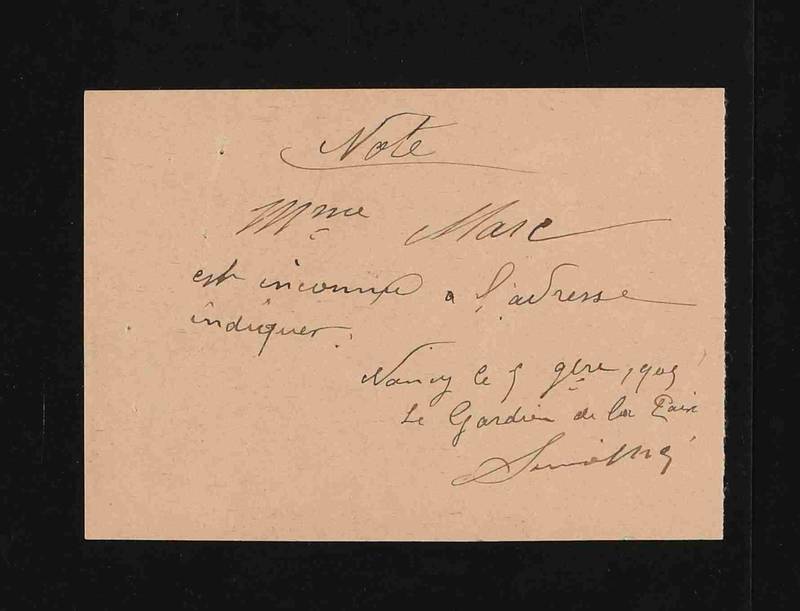 Note
Mme Marc
est inconnue a l'adresse
indiquer.
Nancy le 5 9bre 1905
Le Gardien de la Paix